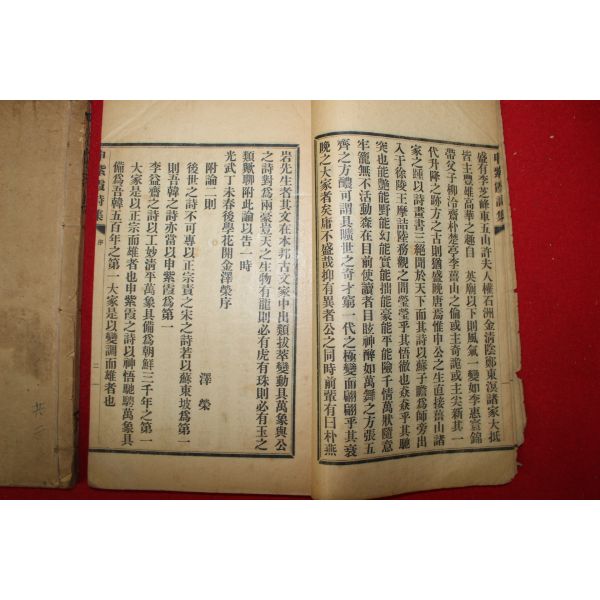 申紫霞詩集
盛有李芝峰車五山許夫人權石洲金淸陰鄭東溟諸家大抵
皆主豐雄高華之趣自　英廟以下則風氣一變如李惠寰錦
帶父子柳泠齋朴楚亭李薑山之倫或主奇詭或主尖新其一
代升降之跡方之古則猶盛晩唐焉惟申公之生直接薑山諸
家之踵以詩畫書三絕聞於天下而其詩以蘇子瞻爲師旁出
入于徐陵王摩詰陸務觀之間瑩瑩乎其悟徹也猋猋乎其馳
突也能艶能野能幻能實能拙能豪能平能險千情萬狀隨意
牢籠無不活動森在目前使讀者目眩神醉如萬舞之方張五
齊之方醲可謂具曠世之奇才窮一代之極變而翩翩乎其衰
晩之大家者矣庸不盛哉抑有異者公之同時前輩有曰朴燕
岩先生者其文在本邦古文家中出類拔萃變動具萬象與公
之詩對爲兩豪豈天之生物有龍則必有虎有珠則必有玉之
類歟聊附此論以告一時
光武丁未春後學花開金澤榮序
附論二則　澤榮
後世之詩不可專以正宗責之宋之詩若以蘇東坡爲第一
則吾韓之詩亦當以申紫霞爲第一
李益齋之詩以工妙淸平萬象具備爲朝鮮三千年之第一
大家是以正宗而雄者也申紫霞之詩以神悟馳騁萬象具
備爲吾韓五百年之第一大家是以變調而雄者也
申紫霞詩集　序　二